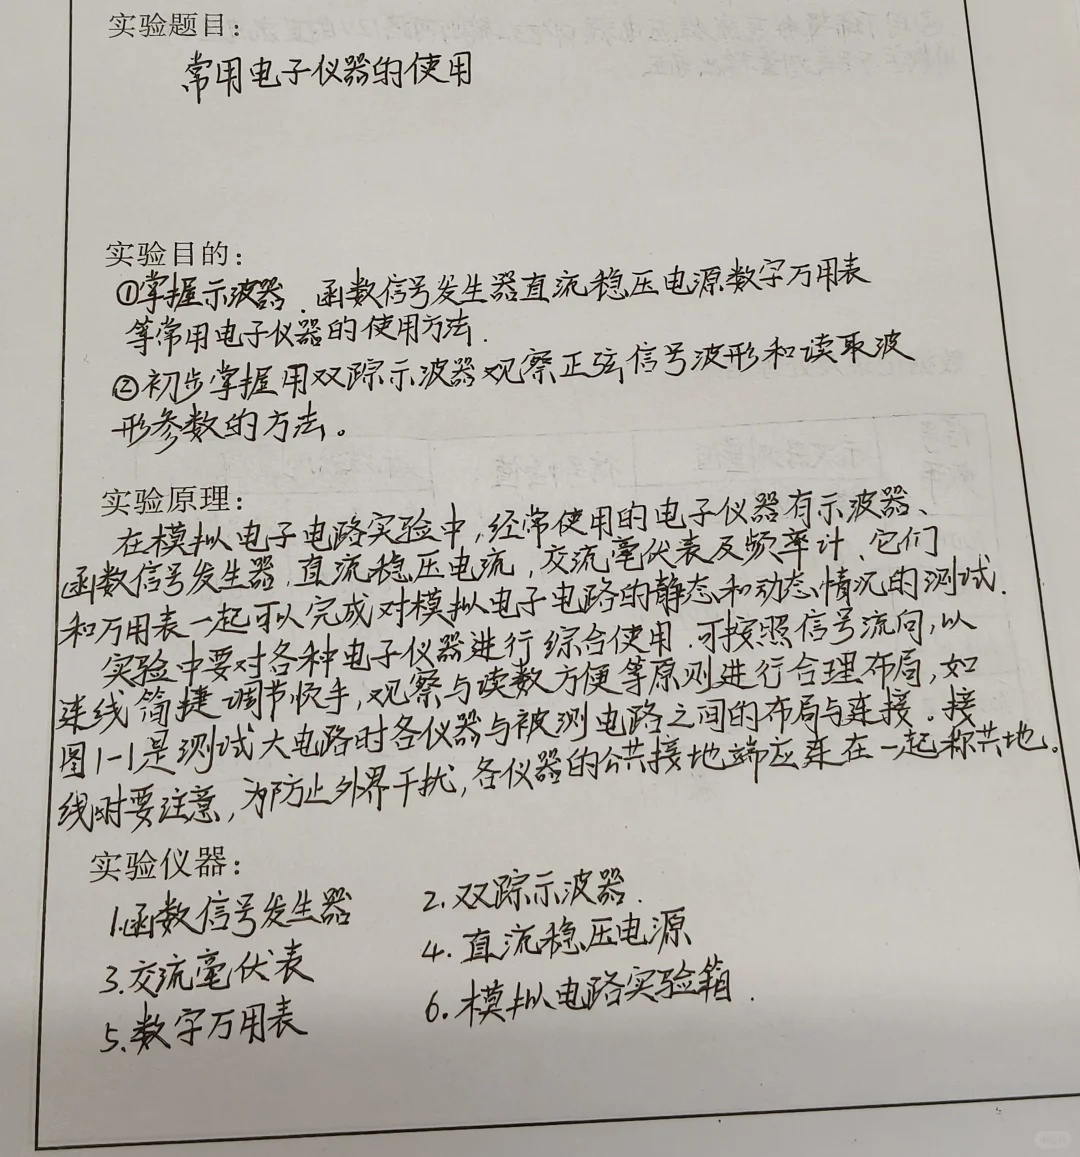 实验题目：
常用电子仪器的使用
实验目的：
①掌握示波器、函数信号发生器直流稳压电源数字万用表
等常用电子仪器的使用方法.
②初步掌握用双踪示波器观察正弦信号波形和读取波
形参数的方法。
实验原理：
在模拟电子电路实验中,经常使用的电子仪器有示波器、
函数信号发生器、直流稳压电流,交流毫伏表及频率计、它们
和万用表一起可以完成对模拟电子电路的静态和动态情况的测试.
实验中要对各种电子仪器进行综合使用.可按照信号流向,以
连线简捷调节快手,观察与读数方便等原则进行合理布局,如
图1-1是测试大电路时各仪器与被测电路之间的布局与连接.接
线时要注意,为防止外界干扰,各仪器的公共接地端应连在一起称共地。
实验仪器：
1.函数信号发生器 2.双踪示波器.
3.交流毫伏表 4.直流稳压电源
5.数字万用表 6.模拟电路实验箱.